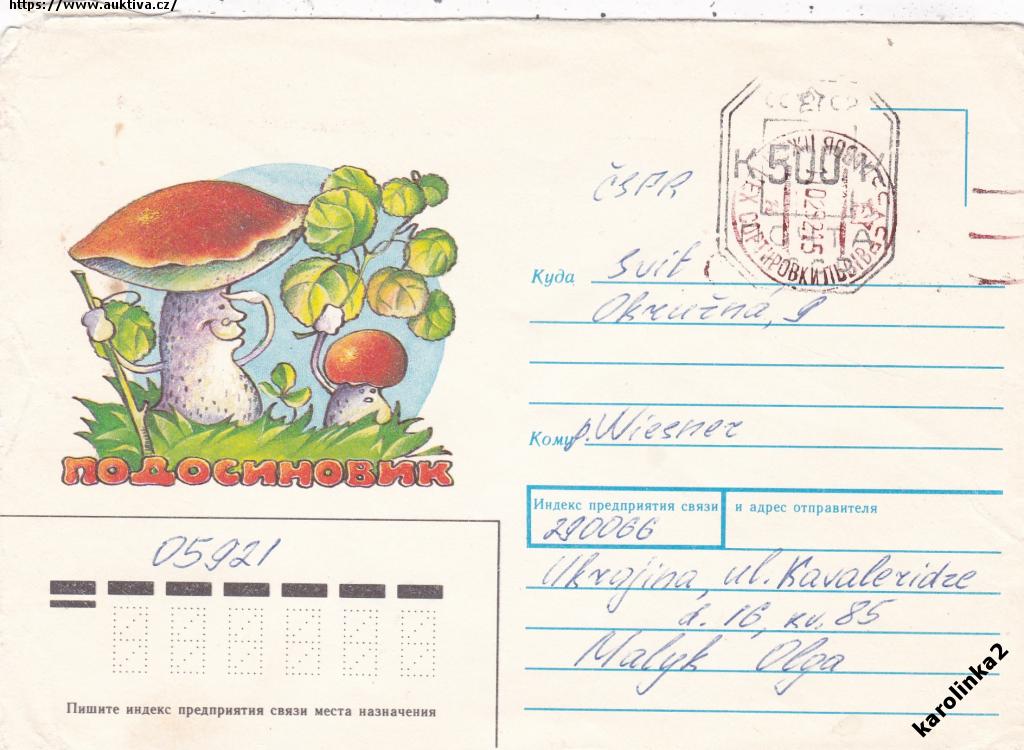 https://www.auktiva.cz/
К 500 К
ЦЕХ СОРТИРОВКИ ЛЬВІВ
ČSFR
Куда Svit
Okružná, 9
Кому p. Wiesner
ПОДОСИНОВИК
Индекс предприятия связи и адрес отправителя
290066
05921
Ukrajina, ul. Kavaleridze
d. 16, kv. 85
Malyk Olga
Пишите индекс предприятия связи места назначения
karolinka2